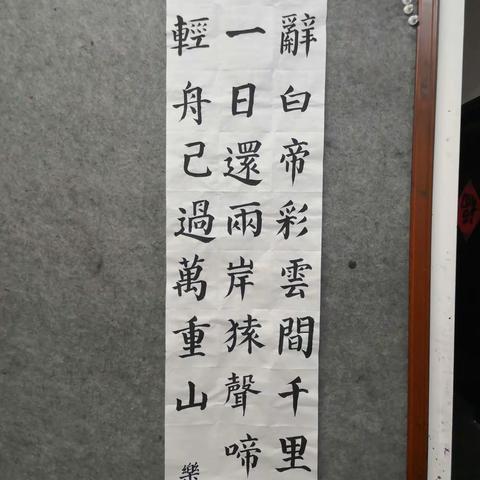 辭白帝彩雲間千里
一日還兩岸猿聲啼
輕舟已過萬重山
樂